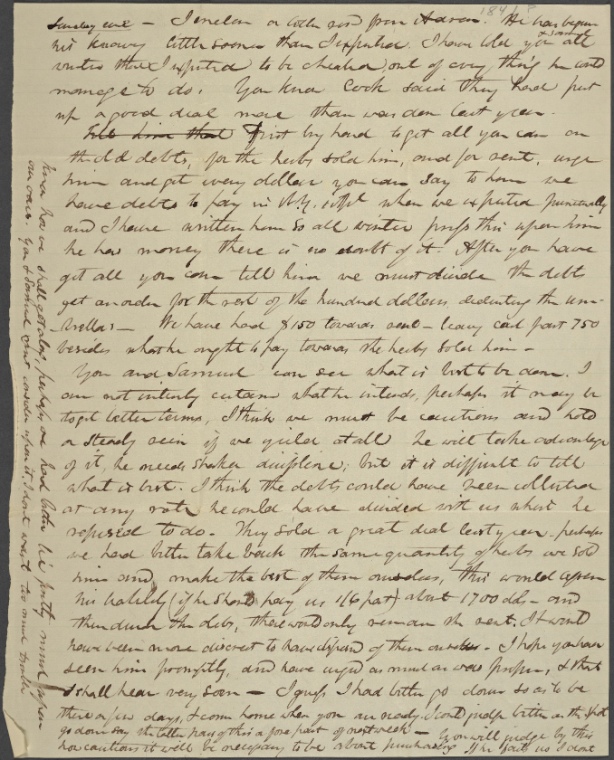 1848
Sunday eve — I enclose a letter recd from Aaron. He has begun
his knavery little sooner than I expected. I have told you & Samuel all
winter that I expected to be cheated out of every thing he could
manage to do. You know Cook said they had put
up a good deal more than was done last year.
Tell him that First try hard to get all you can on
the old debts, for the herbs sold him, and for rent, urge
him and get every dollar you can say to him we
have debts to pay in N.Y. expt when we expected punctually
and I have written him so all winter press this upon him
he has money there is no doubt of it. After you have
got all you can tell him we must divide the debt
get an order for the rest of the hundred dollars deducting the um-
brellas — We have had $150 towards rent — leaving east part 750
besides what he ought to pay towards the herbs sold him —
You and Samuel can see what is best to be done. I
am not entirely certain what he intends, perhaps it may be
to get better terms, I think we must be cautious and hold
a steady rein if we yield at all he will take advantage
of it, he needs Shaker discipline; but it is difficult to tell
what is best. I think the debts could have been collected
at any rate he could have divided with us what he
refused to do. They sold a great deal last year. perhaps
we had better take back the same quantity of herbs we sold
him and make the best of them ourselves, this would lessen
his liability (if he should pay us 1/6 pat) about 1700 dolls — and
then divide the debts, there would only remain the rent. It would
have been more discreet to have disposed of them ourselves. I hope you have
seen him promptly, and have urged as much as was proper, & that
I shall hear very soon — I guess I had better go down so as to be
there a few days, & come home when you are ready I could judge better on the spot
go down say the latter part of this a fore part of next week — You will judge by this
how cautious it will be necessary to be about purchasing If he fails us I dont
know how we shall get along, perhaps we had better lie pretty much upon
our oars. You & Samuel can consider upon it, I dont want too much trouble